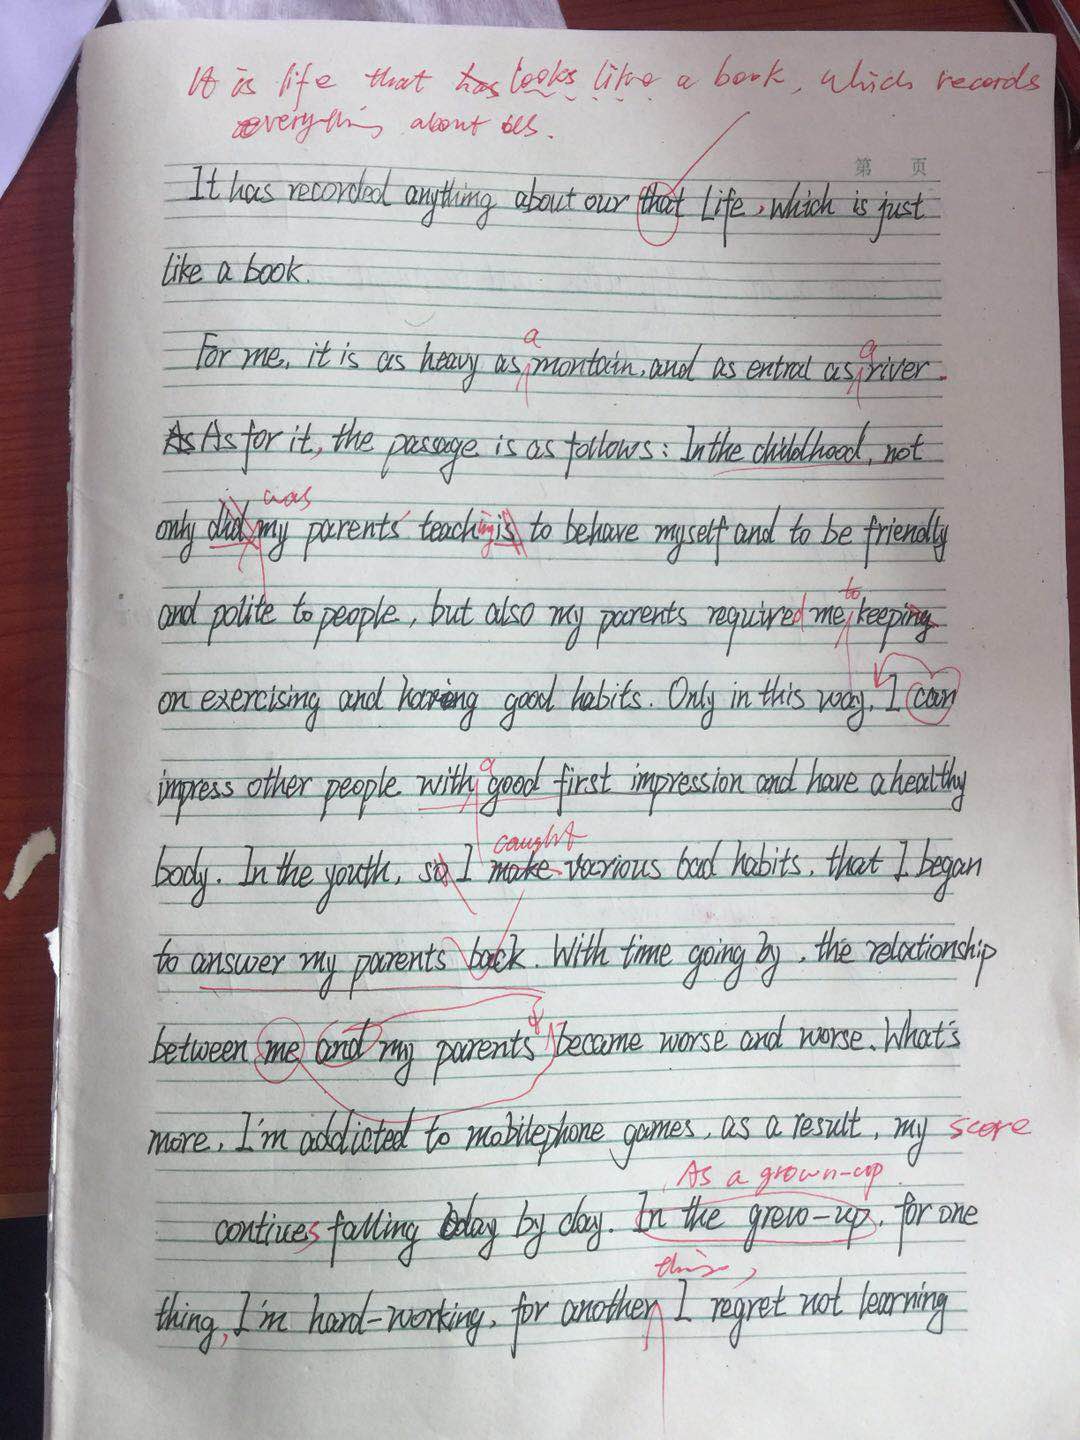 It is life that has looks like a book, which records
everything about us.
第 页
It has recorded anything about our that Life, which is just
like a book.
a a
For me, it is as heavy as montain, and as entral as river.
As As for it, the passage is as follows: In the childhood, not
was
only did my parents' teaching is to behave myself and to be friendly
to
and polite to people, but also my parents required me keeping
on exercising and having good habits. Only in this way, I can
a
impress other people with good first impression and have a healthy
caught
body. In the youth, so I make various bad habits, that I began
to answer my parents back. With time going by, the relationship
between me and my parents became worse and worse. What's
more, I'm addicted to mobilephone games, as a result, my score
As a grown-up
contiues falling day by day. In the grew-up, for one
thing,
thing, I'm hard-working, for another I regret not learning